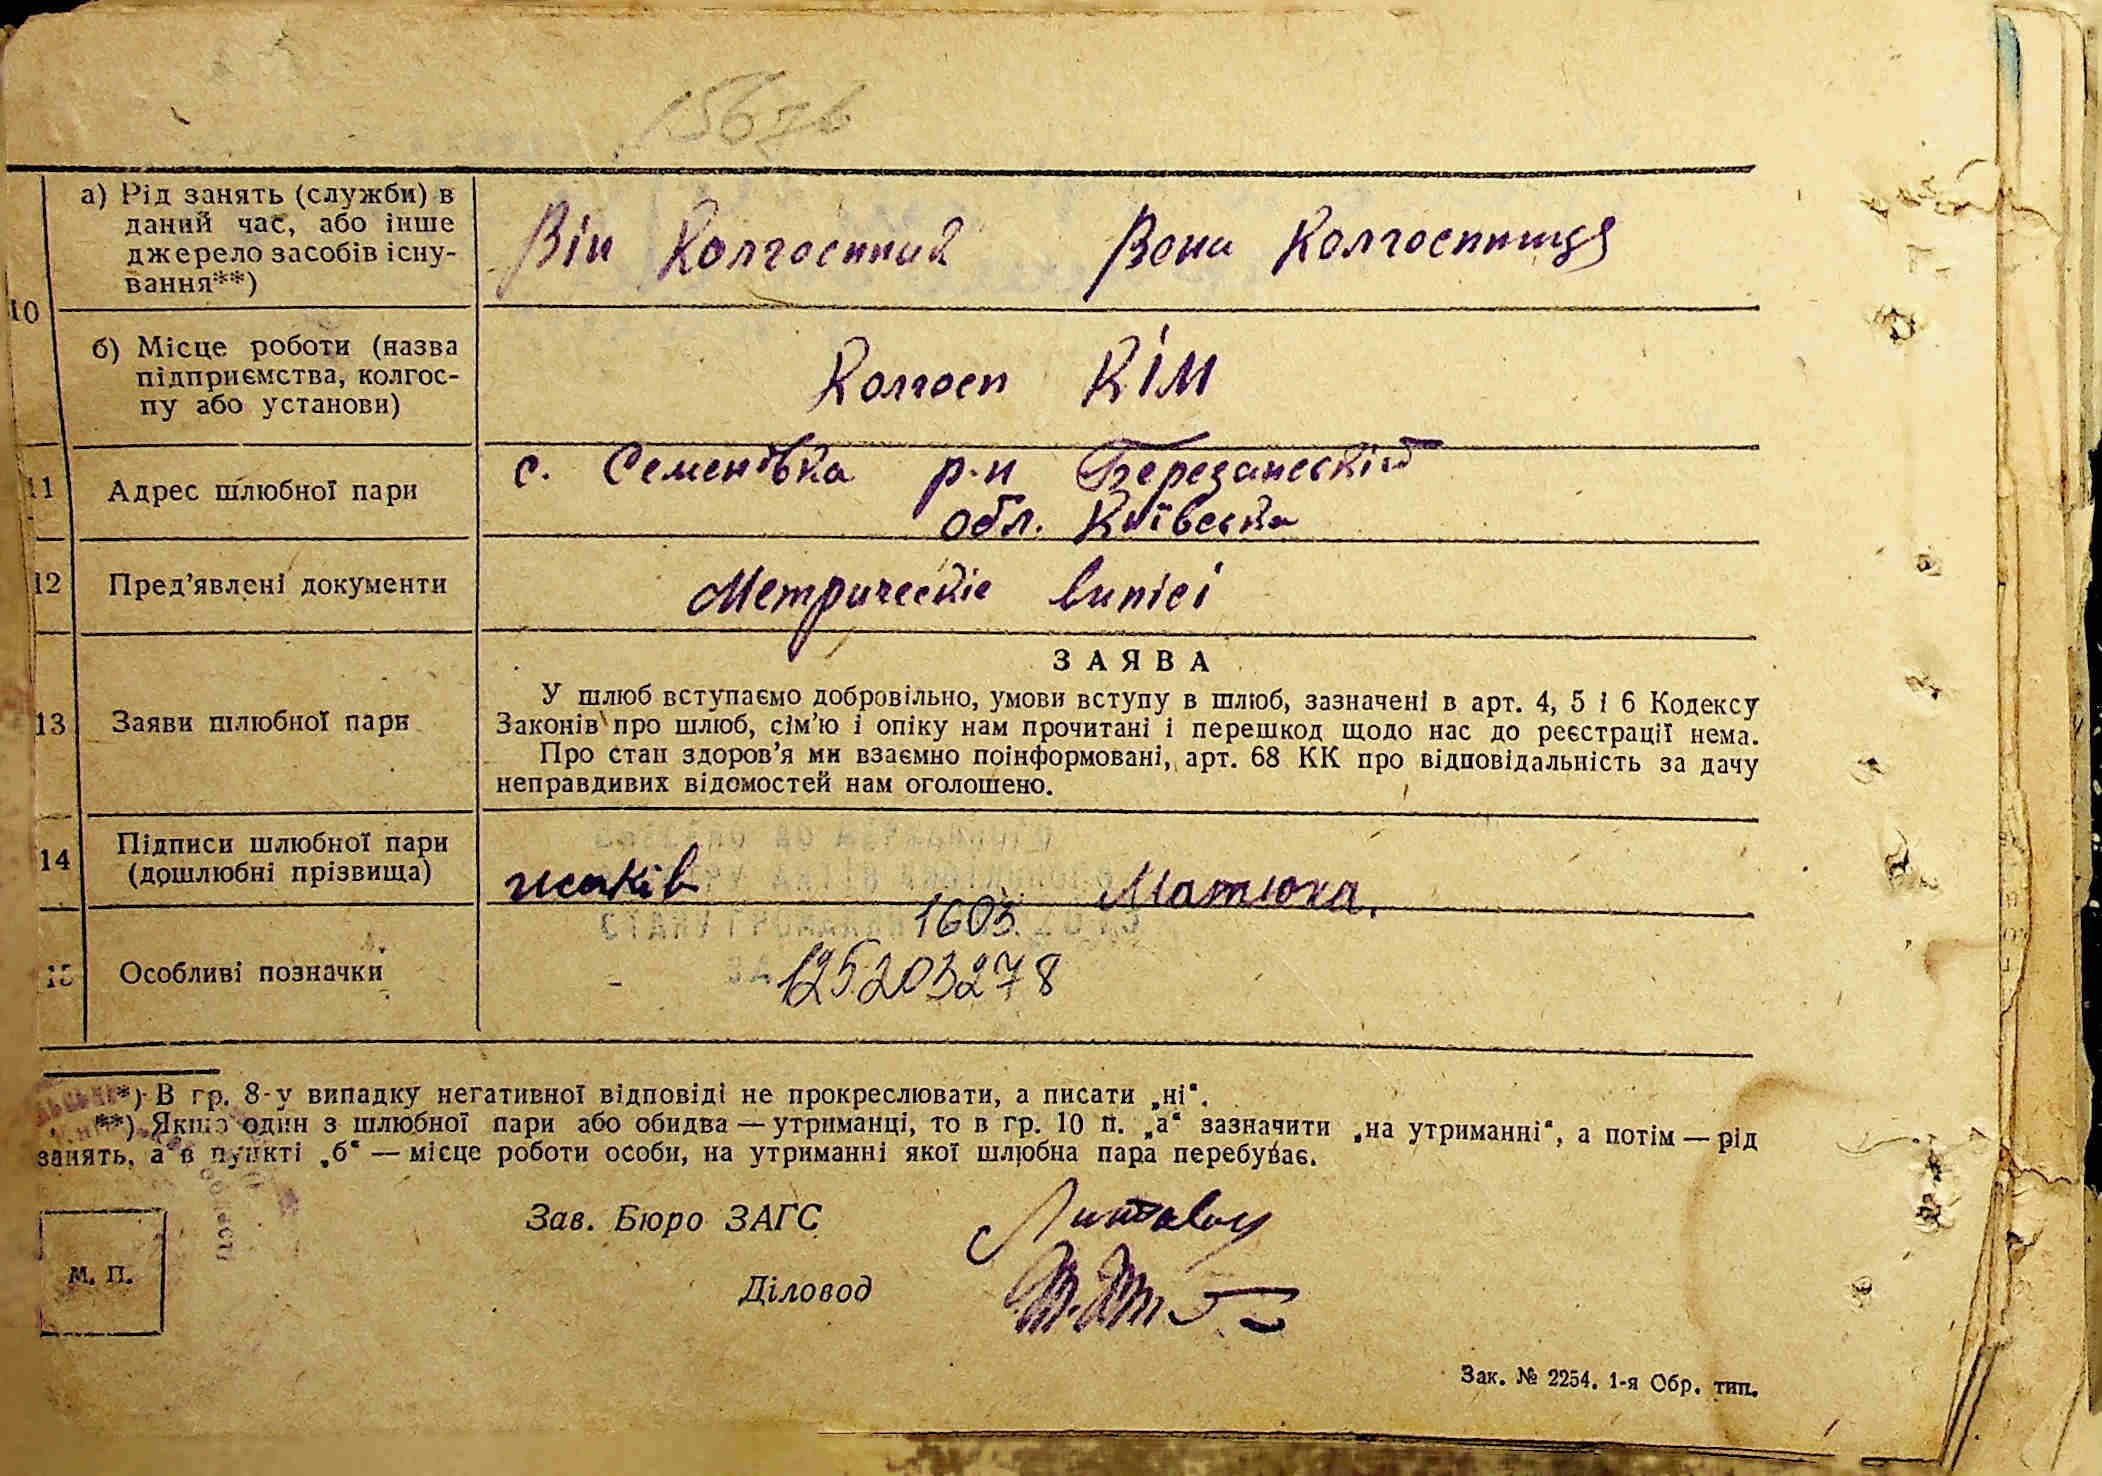 а) Рід занять (служби) в
даний час, або інше
джерело засобів існу-
вання**)
Він Колгоспний Вона Колгоспниця
10
б) Місце роботи (назва
підприємства, колгос-
пу або установи)
Колгосп КІМ
11
Адрес шлюбної пари
с. Семенівка р-н Березанський
обл. Київська
12
Пред’явлені документи
Метрическіе випісі
13
Заяви шлюбної пари
ЗАЯВА
У шлюб вступаємо добровільно, умови вступу в шлюб, зазначені в арт. 4, 5 і 6 Кодексу
Законів про шлюб, сім’ю і опіку нам прочитані і перешкод щодо нас до реєстрації нема.
Про стан здоров’я ми взаємно поінформовані, арт. 68 КК про відповідальність за дачу
неправдивих відомостей нам оголошено.
14
Підписи шлюбної пари
(дошлюбні прізвища)
Матюха.
1603.
15
Особливі позначки
-
125203278
*) В гр. 8-у випадку негативної відповіді не прокреслювати, а писати „ні“.
**) Якщо один з шлюбної пари або обидва — утриманці, то в гр. 10 п. „а“ зазначити „на утриманні“, а потім — рід
занять, а в пункті „б“ — місце роботи особи, на утриманні якої шлюбна пара перебуває.
Зав. Бюро ЗАГС
Діловод
М. П.
Зак. № 2254. 1-я Обр. тип.